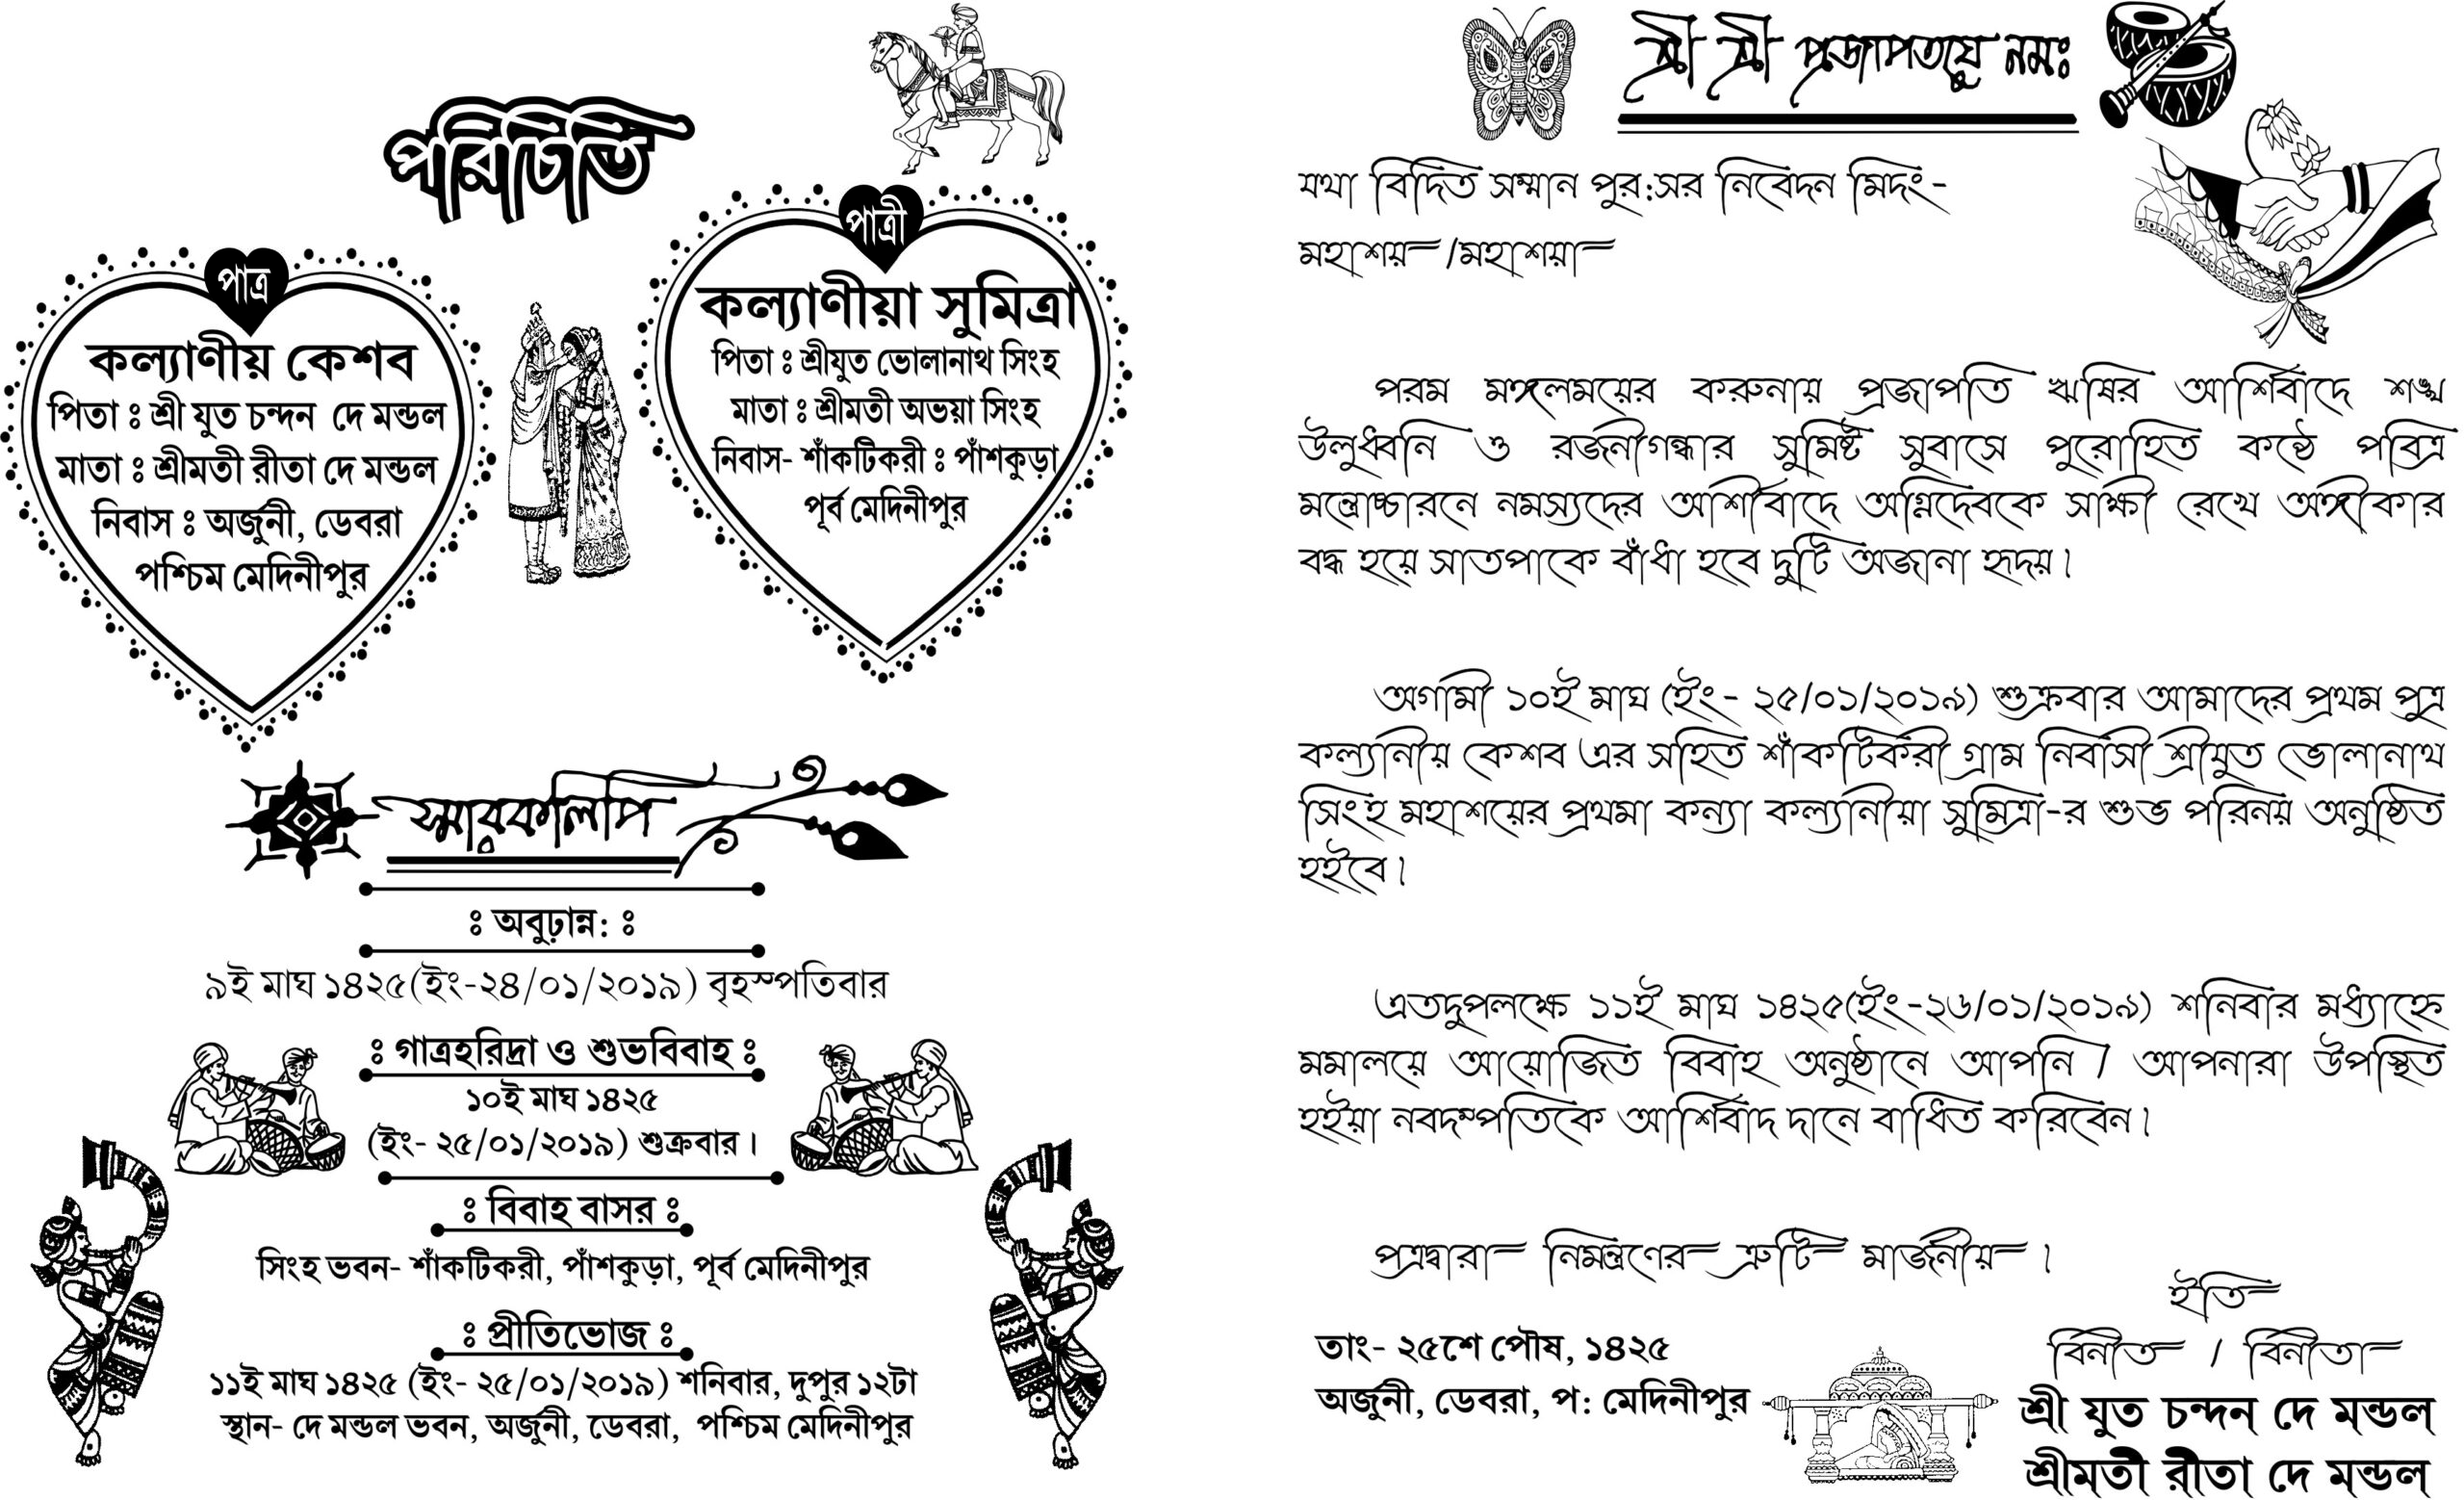 পরিচিতি
পাত্র
কল্যাণীয় কেশব
পিতা ঃ শ্রী যুত চন্দন দে মন্ডল
মাতা ঃ শ্রীমতী রীতা দে মন্ডল
নিবাস ঃ অর্জুনী, ডেবরা
পশ্চিম মেদিনীপুর
পাত্রী
কল্যাণীয়া সুমিত্রা
পিতা ঃ শ্রীযুত ভোলানাথ সিংহ
মাতা ঃ শ্রীমতী অভয়া সিংহ
নিবাস- শাঁকটিকরী ঃ পাঁশকুড়া
পূর্ব মেদিনীপুর
স্মারকলিপি
ঃ অবুঢ়ান্ন: ঃ
৯ই মাঘ ১৪২৫(ইং-২৪/০১/২০১৯) বৃহস্পতিবার
ঃ গাত্রহরিদ্রা ও শুভবিবাহ ঃ
১০ই মাঘ ১৪২৫
(ইং- ২৫/০১/২০১৯) শুক্রবার।
ঃ বিবাহ বাসর ঃ
সিংহ ভবন- শাঁকটিকরী, পাঁশকুড়া, পূর্ব মেদিনীপুর
ঃ প্রীতিভোজ ঃ
১১ই মাঘ ১৪২৫ (ইং- ২৫/০১/২০১৯) শনিবার, দুপুর ১২টা
স্থান- দে মন্ডল ভবন, অর্জুনী, ডেবরা, পশ্চিম মেদিনীপুর
শ্রী শ্রী প্রজাপতয়ে নমঃ
যথা বিদিত সম্মান পুর:সর নিবেদন মিদং-
মহাশয় /মহাশয়া
পরম মঙ্গলময়ের করুনায় প্রজাপতি ঋষির আর্শিবাদে শঙ্খ
উলুধ্বনি ও রজনীগন্ধার সুমিষ্ট সুবাসে পুরোহিত কন্ঠে পবিত্র
মন্ত্রোচ্চারনে নমস্যদের আর্শীবাদে অগ্নিদেবকে সাক্ষী রেখে অঙ্গীকার
বদ্ধ হয়ে সাতপাকে বাঁধা হবে দুটি অজানা হৃদয়।
অগামী ১০ই মাঘ (ইং- ২৫/০১/২০১৯) শুক্রবার আমাদের প্রথম পুত্র
কল্যানীয় কেশব এর সহিত শাঁকটিকরী গ্রাম নিবাসী শ্রীযুত ভোলানাথ
সিংহ মহাশয়ের প্রথমা কন্যা কল্যানীয়া সুমিত্রা-র শুভ পরিনয় অনুষ্ঠিত
হইবে।
এতদুপলক্ষে ১১ই মাঘ ১৪২৫(ইং-২৬/০১/২০১৯) শনিবার মধ্যাহ্নে
মমালয়ে আয়োজিত বিবাহ অনুষ্ঠানে আপনি / আপনারা উপস্থিত
হইয়া নবদম্পতিকে আর্শিবাদ দানে বাধিত করিবেন।
পত্রদ্বারা নিমন্ত্রণের ত্রুটি মার্জনীয় ।
ইতি
বিনীত / বিনীতা
শ্রী যুত চন্দন্ দে মন্ডল্
শ্রীমতী রীতা দে মন্ডল্
তাং- ২৫শে পৌষ, ১৪২৫
অর্জুনী, ডেবরা, প: মেদিনীপুর